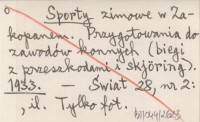 Sporty zimowe w Za-
kopanem. Przygotowania do
zawodów konnych (biegi
z przeszkodami i Skjöring).
1933. — Świat 28, nr 2:
, il. Tylko fot.